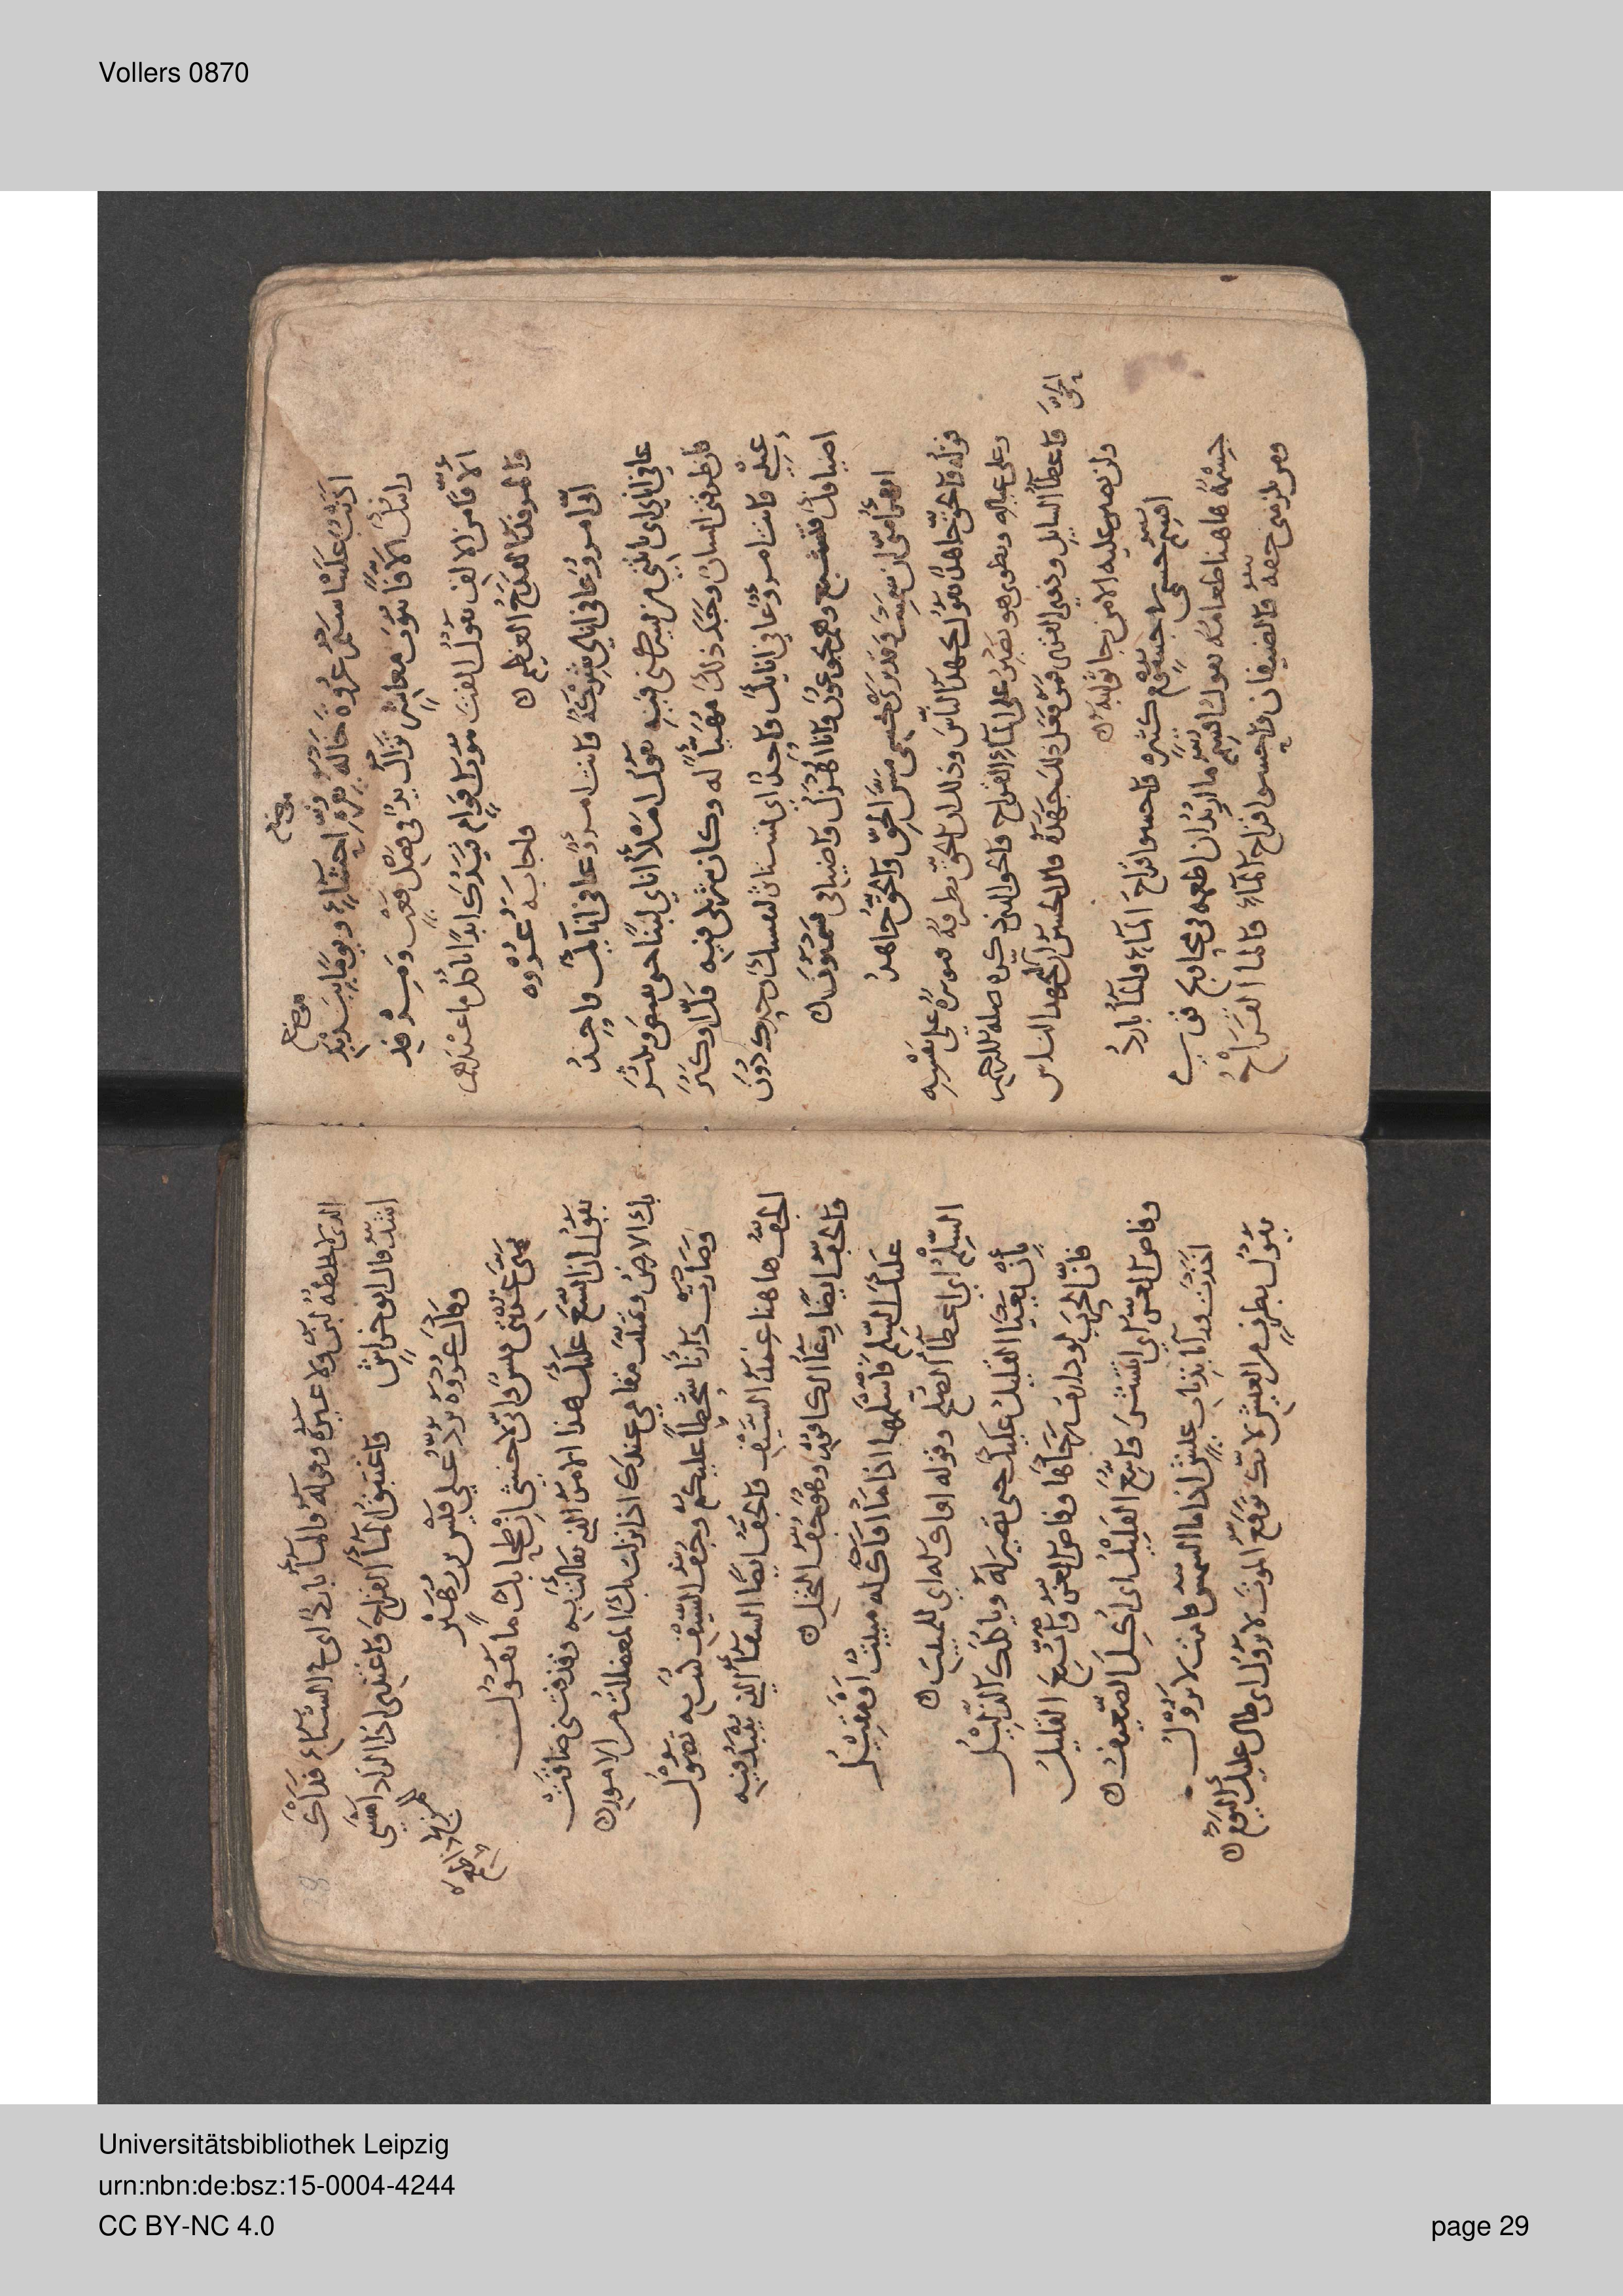 Vollers 0870
رايتك الافا بيوت معاشر تزال يد في فضل قعب ومرفد
الافا من الالف يقول الفت بيوت اقوام فيدك ابدا تاكل ما عندهم
والمرفد القدح العظيم
واجابه عروة
اني امرؤ عافي انائي شركة وانت امرؤ عافي انائك واحد
عافي انائي اي ياتيني من يشركني فيه يقول املأ انائي لبنا حتى يفيض ويكثر
فان طرقني انسان وجد ذلك مهيأ له وكان شريكي فيه قل او كثر
غيره وانت امرؤ عافي انائك واحد اي نفسك وحدك دون
اضيافك فتشبع وهم يجوعون وانا اهزل واضيافي يسمنون
اتهزأ مني ان سمنت وقد ترى بجسمي مس الحق والحق جاهد
قوله والحق جاهد يقول يجهد الناس وذلك ان الحق يطرقه فيوثره على نفسه
وعلى عياله ويطوي هو ويصبر على الماء القراح والحق الذي ذكره صلة الرحم
واعطاء السايل وذوي القربى فمن فعل ذلك جهده قال الحسن ان هذا الحق جهد الناس
ولن يصبر عليه الا من رجا ثوابه
اقسم جسمي في جسوم كثيرة واحسو قراح الماء والماء بارد
جسمه هاهنا طعامه يقول اقسم ما اريد ان اطعمه في محاويج قومي
ومن يلزمني حقه والضيفان واحسو قراح الماء والماء القراح
الذي لا يخلطه لبن ولا غيره وقوله والماء بارد اي في الشتاء فذاك
اشد قال ابو خراش واغتبق الماء القراح واغتدي اذا الزاد امسى للمزلج ذا طعم
وقال عروة يرد على قيس بن زهير
تمنى غربتي قيس واني لاخشى ان طحا بك ما تقول
يقول ان اتسع عليك هذا الامر الذي به وقذفتني ضاقت
بك الارض وتمنيت مقامي عندك اذا نزلت بك المعضلات من الامور
وصارت دارنا شحطا عليكم وجف السيف كنت به تصول
الجف هاهنا غمد السيف والجف ايضا السقاء الذي ينبذ فيه
والجف ايضا وعاء الكافور وهو جف النخل
عليك السلم فاسلمها اذا ما اواك له مبيت او مقيل
السلم اي اعطاء الصلح وقوله اواك له اي للمبيت
بان يعيا القليل عليك حتى تصير له وياكلك الذليل
فان الحرب لو دارت رحاها وفاض العز واتبع القليل
وفاض العز اي انتشر واتبع القليل اي اكل الضعيف
اخذت وراءنا بذناب عيش اذا ما الشمس قامت لا تزول
يقول بطرف من العيش لانك توقع الموت لا تزول اي طال عليك اليوم
Universitätsbibliothek Leipzig
urn:nbn:de:bsz:15-0004-4244
CC BY-NC 4.0
page 29